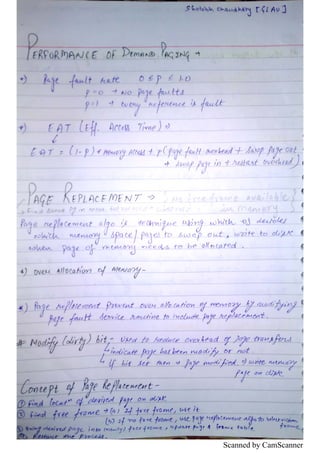 Chaudhary [GLAU]
PERFORMANCE OF DEMAND PAGING →
*) Page fault rate 0 ≤ p ≤ 1.0
p=0 → no page faults
p=1 → every reference is fault
*) EAT (Eff. Access Time) →
EAT = (1-p) * memory access + p (page fault overhead + swap page out
+ swap page in + restart overhead)
PAGE REPLACEMENT → (no free frame available)
in memory
Page replacement algo is technique using which OS decides
which memory space/pages to swap out, write to disk
when page of memory needs to be allocated.
*) over allocation of memory-
*) Page replacement prevent over allocation of memory by modifying
page fault service routine to include page replacement.
# Modify (dirty) bit :- used to reduce overhead of page transfers
indicate page has been modify or not
If bit set then → page modified → write memory
page on disk
Concept of Page Replacement-
① Find locan of desired page on disk
② Find free frame → (a) If free frame, use it
(b) if no free frame, use page replacement algo to select victim
frame
③ Bring desired page into (newly) free frame, update page & frame table
Restart the process.
Scanned by CamScanner